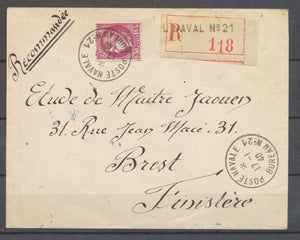 Recommandée
POSTE NAVALE
BUREAU N° 21
R
BUREAU NAVAL N° 21
118
Etude de Maitre Jaouen
31. Rue Jean Macé. 31.
Brest
Finistère
POSTE NAVALE
BUREAU N° 21
17 - 1
40